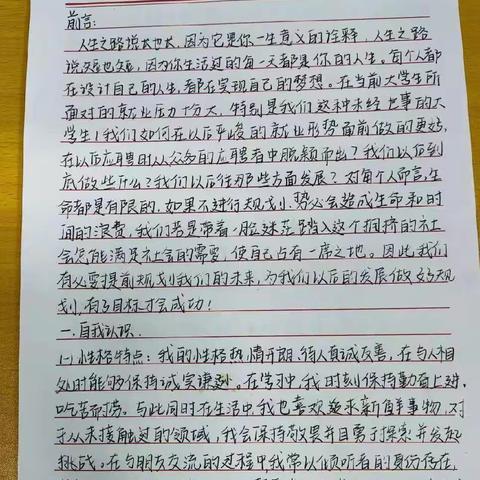 前言:
人生之路说长也长,因为它是你一生意义的诠释,人生之路
说短也短,因为你生活过的每一天都是你的人生。每个人都
在设计自己的人生,都在实现自己的梦想。在当前大学生所
面对的就业压力十分大,特别是我们这种未经世事的大
学生!我们如何在以后严峻的就业形势面前做的更好,
在以后应聘时从众多的应聘者中脱颖而出?我们以后到
底做些什么?我们以后往那些方面发展?对每个人而言,生
命都是有限的,如果不进行规划,势必会造成生命和时
间的浪费,我们若是带着一脸茫然踏入这个拥挤的社
会怎能满足社会的需要,使自己占有一席之地。因此,我们
有必要提前规划我们的未来,为我们以后的发展做好规
划,有了目标才会成功!
一.自我认识.
(一)性格特点:我的性格热情开朗,待人真诚友善,在与人相
处时能够保持诚实谦逊。在学习中我时刻保持勤奋上进,
吃苦耐劳。与此同时在生活中我也喜欢追求新鲜事物,对
于从未接触过的领域,我会保持敬畏并且勇于探索并发起
挑战。在与朋友交流的过程中我常以倾听者的身份存在,